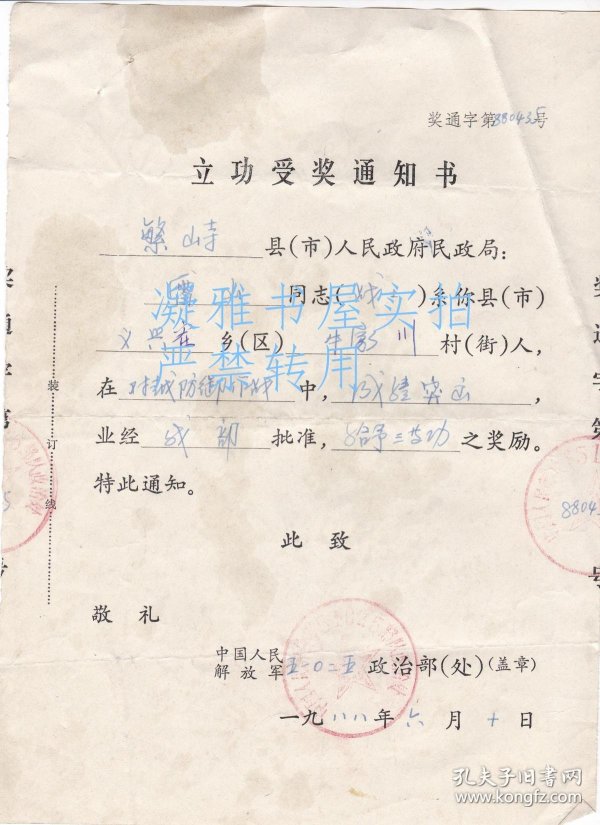 奖通字第880435号
立功受奖通知书
繁峙县(市)人民政府民政局:
同志( )系你县(市)
义兴寨乡(区) 川村(街)人,
在对越防御作战中,成绩突出,
业经 部批准,给予三等功之奖励。
特此通知。
此致
敬礼
中国人民解放军五一〇二五政治部(处)(盖章)
一九八八年六月十日
装订线
奖通字第
号
8804
凝雅书屋实拍
严禁转用
孔夫子旧书网
www.kongfz.com